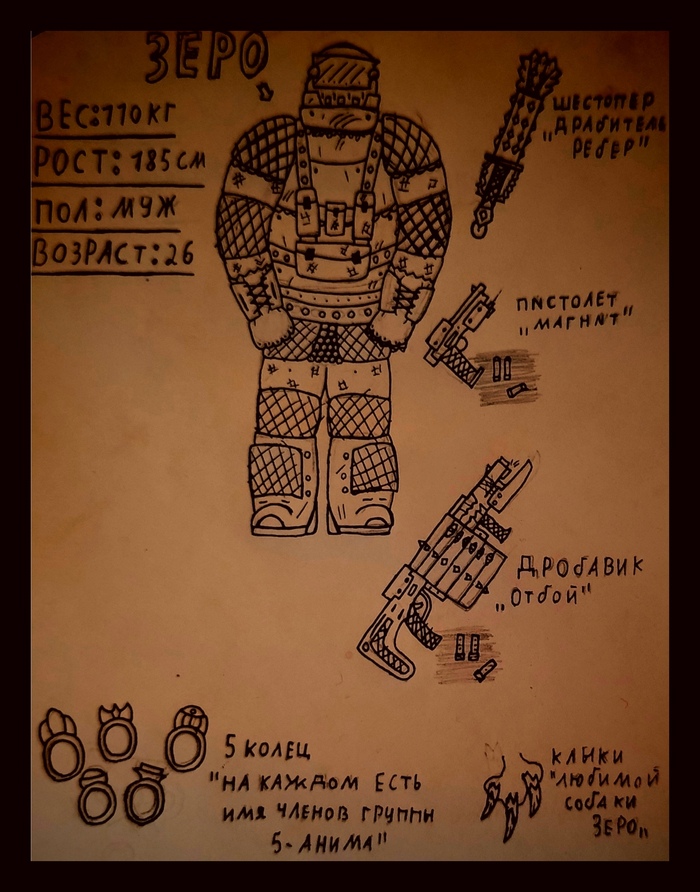 ЗЕРО
ВЕС:110КГ
РОСТ: 185СМ
ПОЛ: МУЖ
ВОЗРАСТ:26
ШЕСТОПЕР
"ДРАБИТЕЛЬ
РЕБЕР"
ПИСТОЛЕТ
"МАГНИТ"
ДРОБАВИК
"Отбой"
5 КОЛЕЦ
"НА КАЖДОМ ЕСТЬ
ИМЯ ЧЛЕНОВ ГРУППИ
5-АНИМА"
КЛЫКИ
"ЛЮБИМОЙ
СОБАКИ
ЗЕРО"